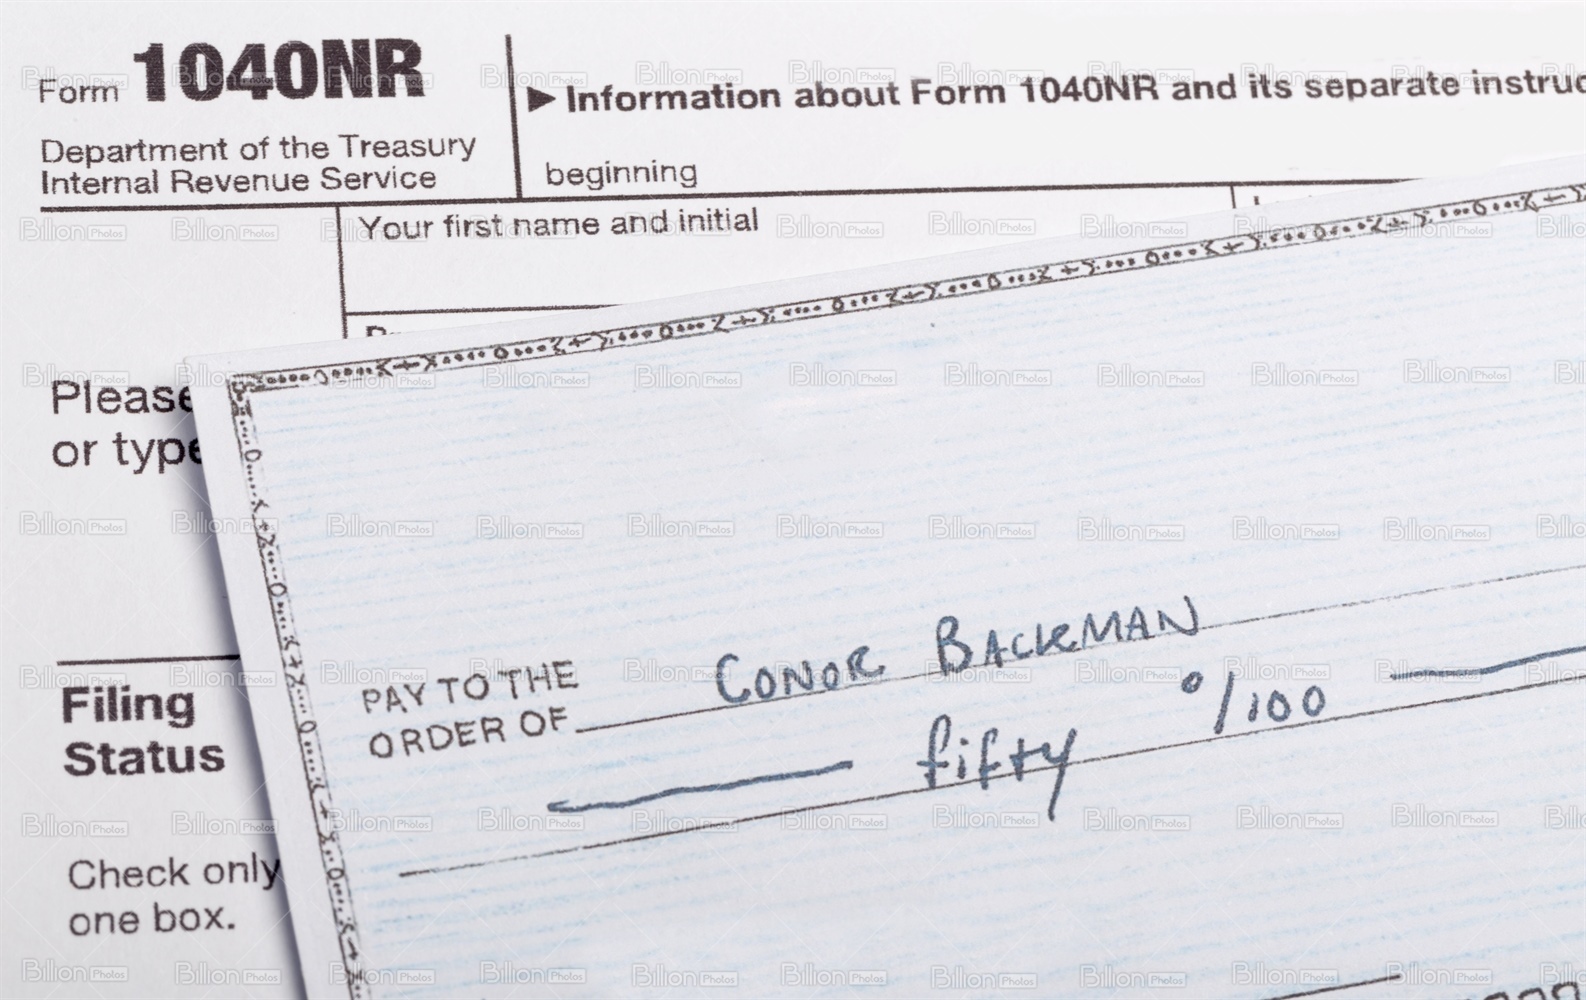 Form 1040NR
Department of the Treasury
Internal Revenue Service
▶ Information about Form 1040NR and its separate
beginning
Your first name and initial
Please
or type
Filing
Status
Check only
one box.
PAY TO THE
ORDER OF
CONOR BACKMAN
fifty 0/100
Billion Photos